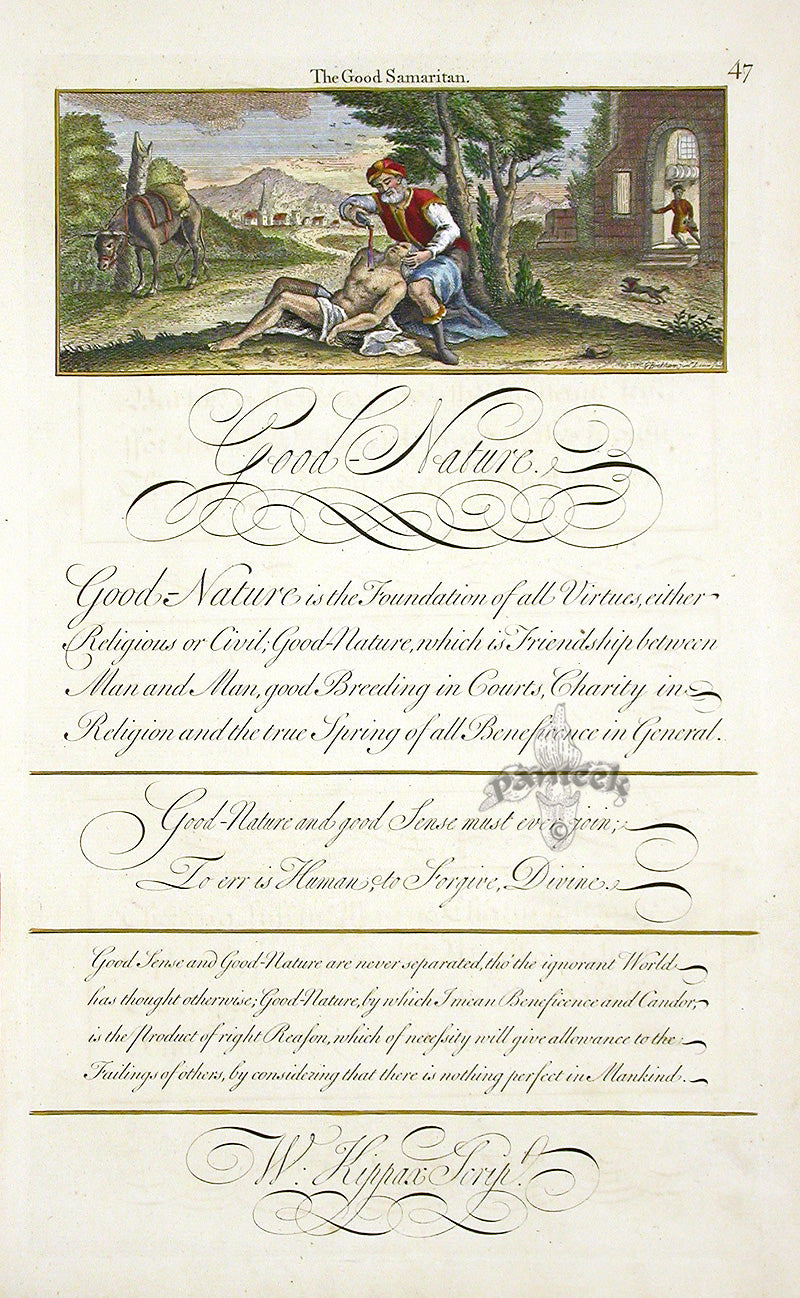 The Good Samaritan.
47
Good-Nature.
Good-Nature is the Foundation of all Virtues, either
Religious or Civil; Good-Nature, which is Friendship between
Man and Man, good Breeding in Courts, Charity in
Religion and the true Spring of all Beneficence in General.
pameek
©
Good-Nature and good Sense must ever join;
To err is Human, to Forgive, Divine.
Good Sense and Good-Nature are never separated, tho' the ignorant World
has thought otherwise; Good-Nature, by which I mean Beneficence and Candor,
is the Product of right Reaſon, which of neceſsity will give allowance to the
Failings of others, by considering that there is nothing perfect in Mankind.
W. Kippax Scripᵗ.